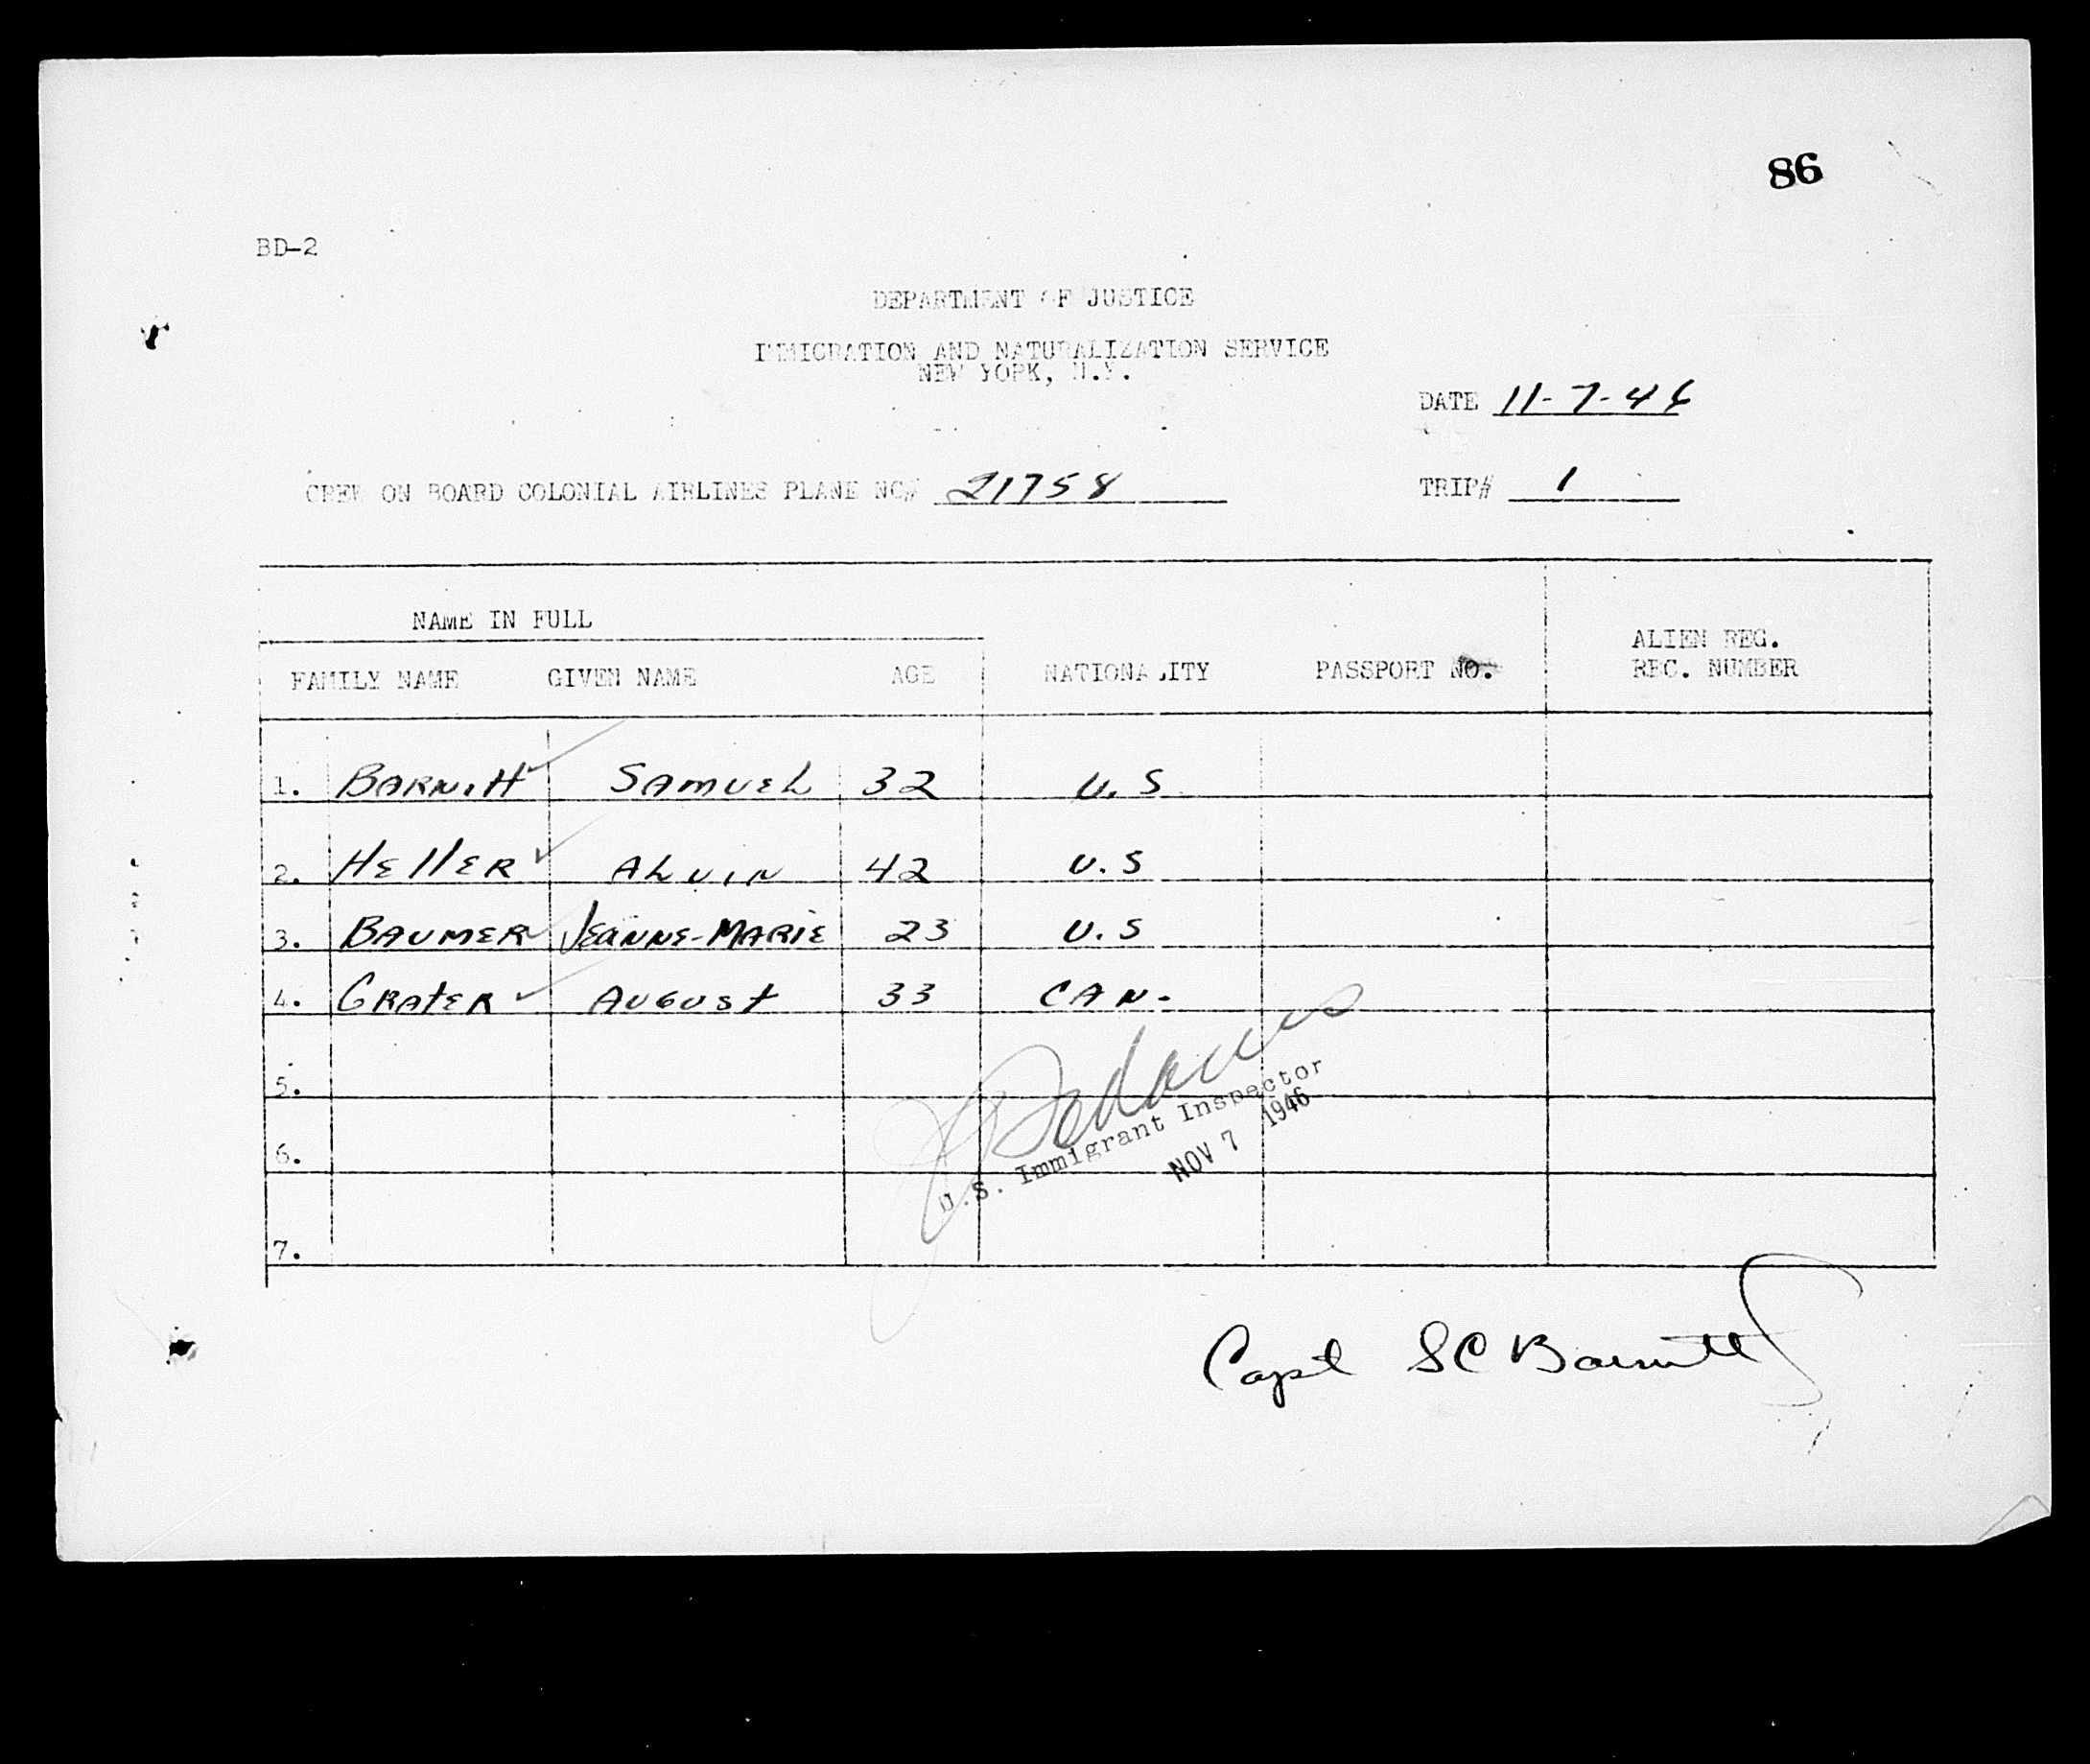 86
BD-2
DEPARTMENT OF JUSTICE
IMMIGRATION AND NATURALIZATION SERVICE
NEW YORK, N.Y.
DATE 11-7-46
CREW ON BOARD COLONIAL AIRLINES PLANE NC# 21758 TRIP# 1
NAME IN FULL
FAMILY NAME GIVEN NAME AGE NATIONALITY PASSPORT NO. ALIEN REG. REC. NUMBER
1. BARNITT SAMUEL 32 U.S
2. HELLER ALVIN 42 U.S
3. BAUMER JEANNE-MARIE 23 U.S
4. GRATER AUGUST 33 CAN.
5.
6.
7.
U.S. Immigrant Inspector
NOV 7 1946
Capt S C Barnitt